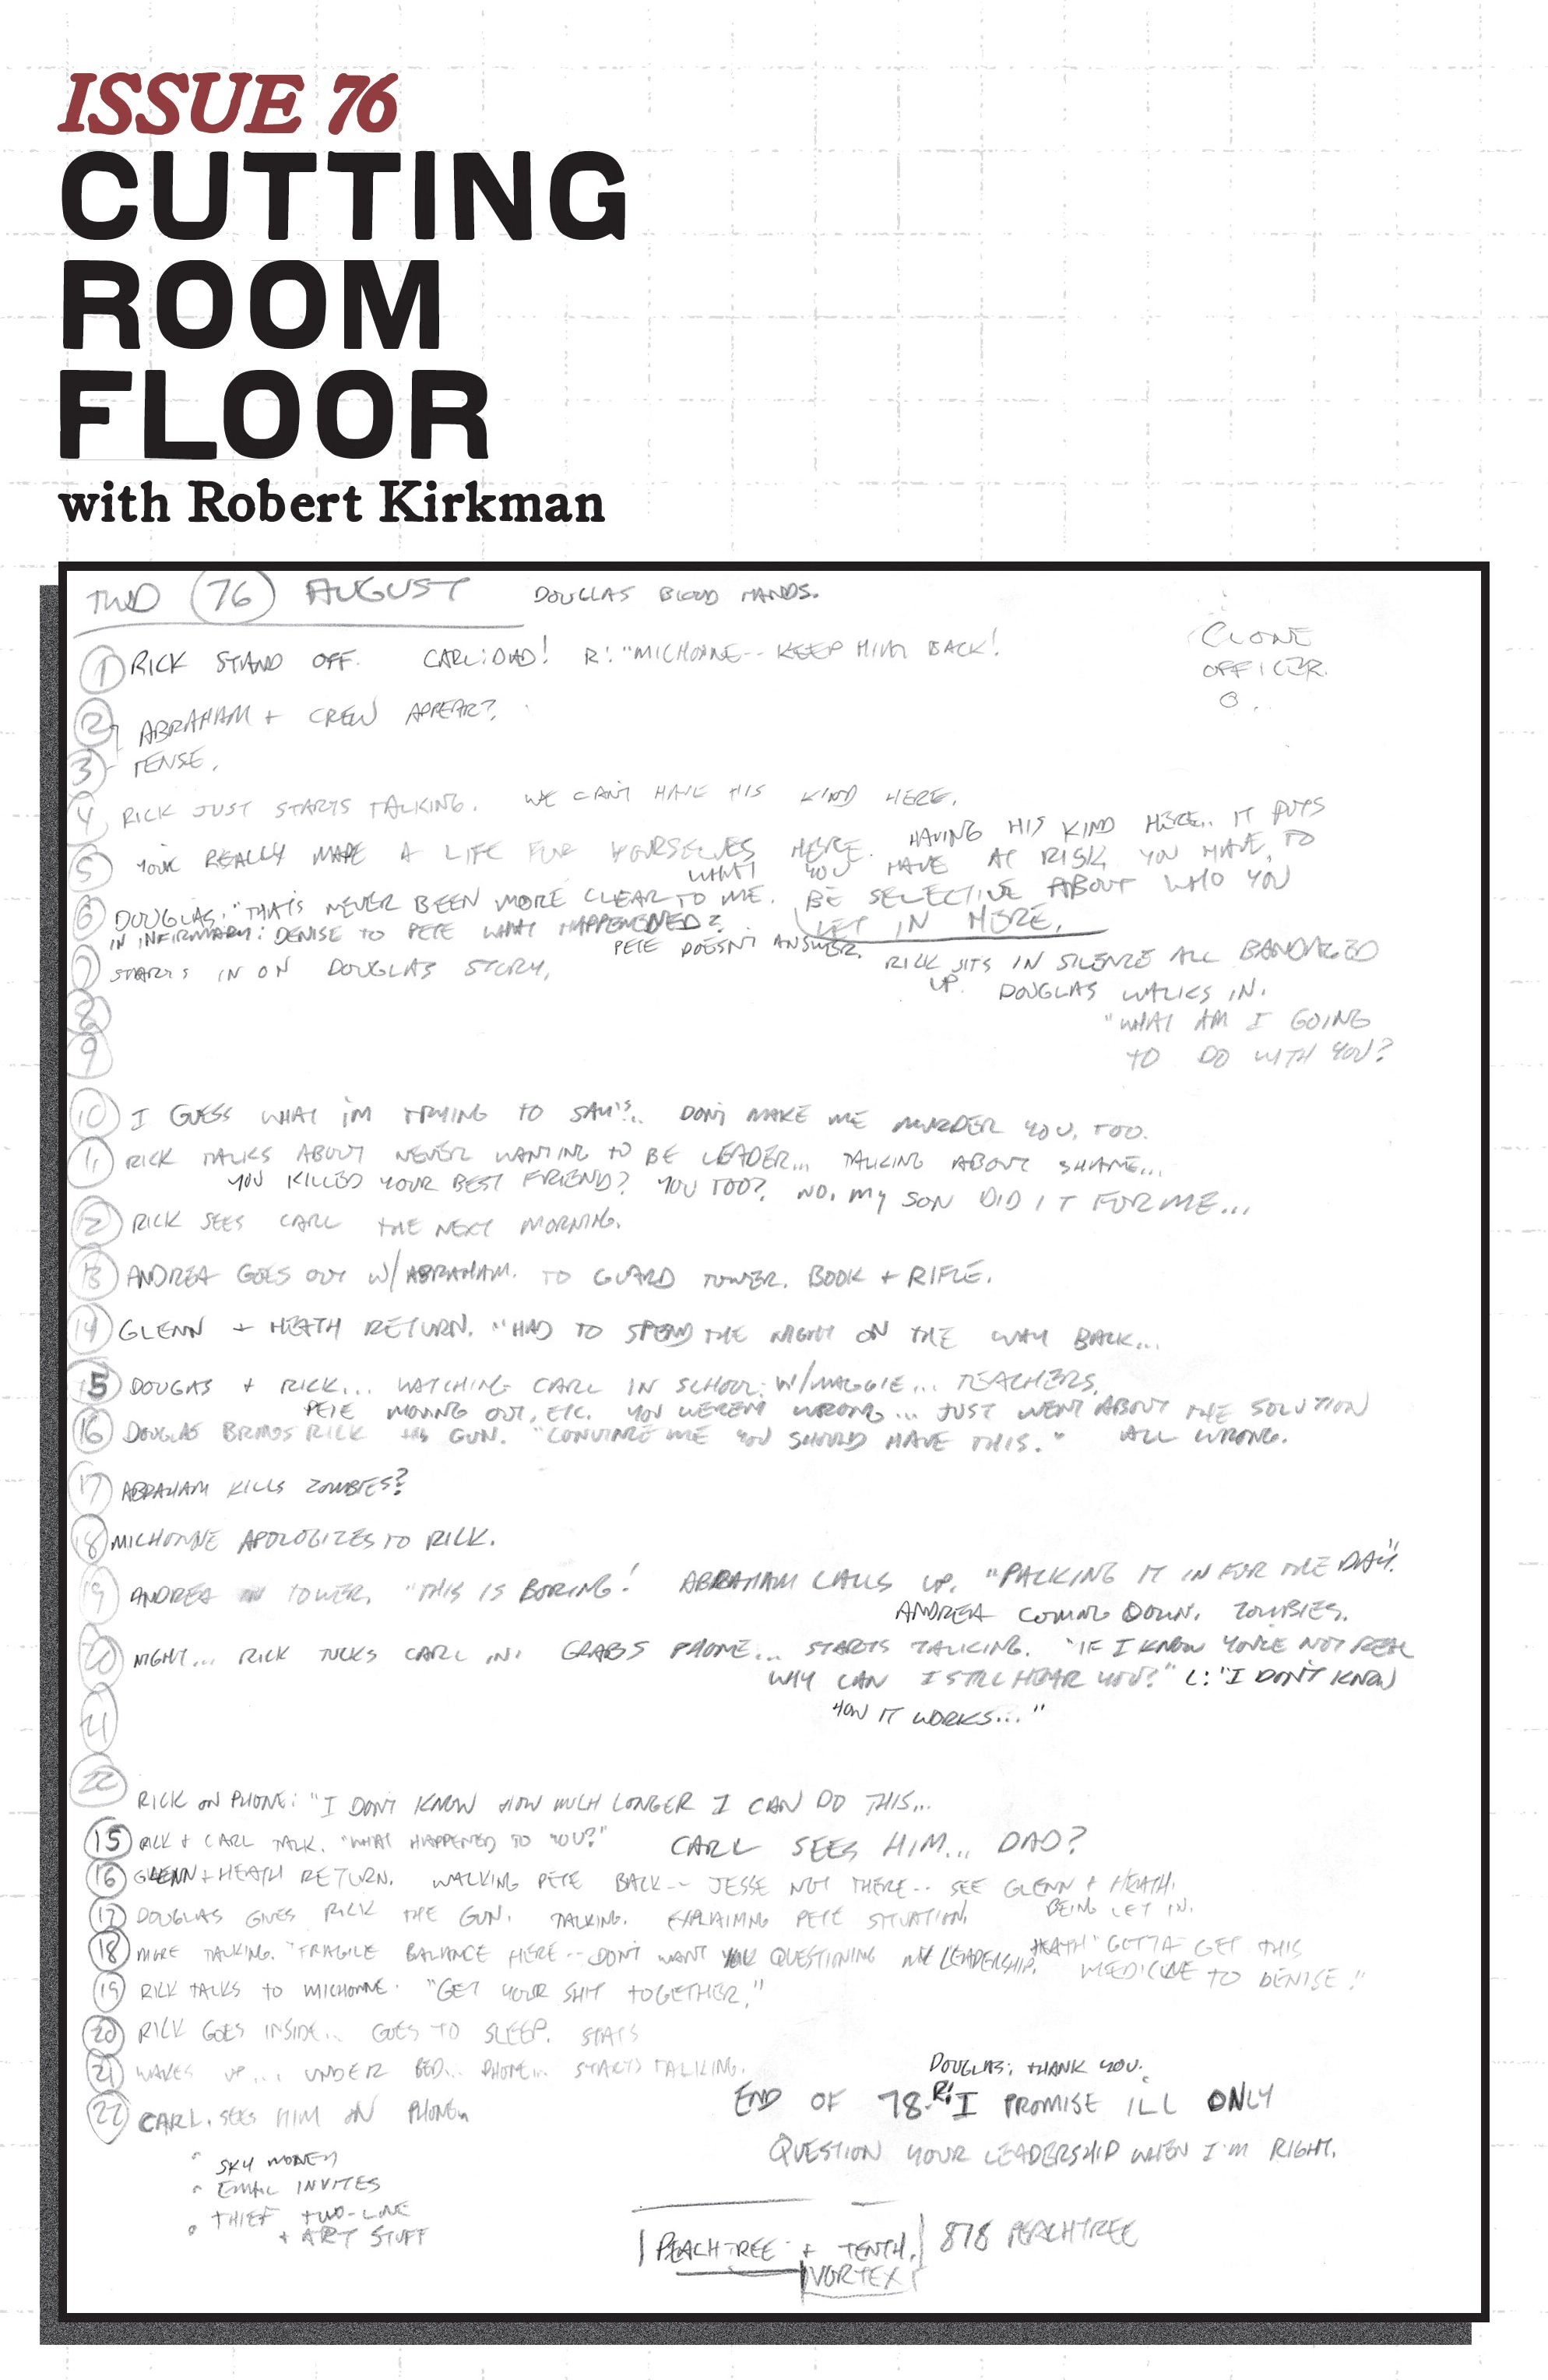 ISSUE 76
CUTTING
ROOM
FLOOR
with Robert Kirkman
TWD (76) AUGUST DOUGLAS BLOOD HANDS.
CLONE
OFFICER.
1 RICK STAND OFF. CARL: DAD! R: "MICHONNE-- KEEP HIM BACK!
2 ABRAHAM + CREW APPEAR?
3 TENSE.
4 RICK JUST STARTS TALKING. WE CAN'T HAVE HIS KIND HERE.
5 YOU'VE REALLY MADE A LIFE FOR YOURSELVES HERE. HAVING HIS KIND HERE.. IT PUTS
WHAT YOU HAVE AT RISK, YOU HAVE TO
BE SELECTIVE ABOUT WHO YOU
LET IN HERE.
6 DOUGLAS: "THAT'S NEVER BEEN MORE CLEAR TO ME.
IN INFIRMARY: DENISE TO PETE WHAT HAPPENED?
PETE DOESN'T ANSWER.
RICK SITS IN SILENCE ALL BANDAGED
UP. DOUGLAS WALKS IN.
"WHAT AM I GOING
TO DO WITH YOU?
7 STARTS IN ON DOUGLAS STORY,
8
9
10 I GUESS WHAT I'M TRYING TO SAY IS.. DON'T MAKE ME MURDER YOU, TOO.
11 RICK TALKS ABOUT NEVER WANTING TO BE LEADER... TALKING ABOUT SHANE...
YOU KILLED YOUR BEST FRIEND? YOU TOO? NO, MY SON DID IT FOR ME...
12 RICK SEES CARL THE NEXT MORNING.
13 ANDREA GOES OUT W/ABRAHAM. TO GUARD TOWER. BOOK + RIFLE.
14 GLENN + HEATH RETURN. "HAD TO SPEND THE NIGHT ON THE WAY BACK...
15 DOUGAS + RICK... WATCHING CARL IN SCHOOL: W/MAGGIE... TEACHERS,
PETE MOVING OUT, ETC. YOU WEREN'T WRONG... JUST WENT ABOUT THE SOLUTION
ALL WRONG.
16 DOUGLAS BRINGS RICK HIS GUN. "CONVINCE ME YOU SHOULD HAVE THIS."
17 ABRAHAM KILLS ZOMBIES?
18 MICHONNE APOLOGIZES TO RICK.
19 ANDREA IN TOWER. "THIS IS BORING! ABRAHAM CALLS UP, "PACKING IT IN FOR THE DAY."
ANDREA COMING DOWN. ZOMBIES.
20 NIGHT... RICK TUCKS CARL IN. GRABS PHONE... STARTS TALKING. "IF I KNOW YOU'RE NOT REAL
WHY CAN I STILL HEAR YOU?" L: "I DON'T KNOW
HOW IT WORKS..."
21
22 RICK ON PHONE: "I DON'T KNOW HOW MUCH LONGER I CAN DO THIS...
CARL SEES HIM... DAD?
15 RICK + CARL TALK. "WHAT HAPPENED TO YOU?"
16 GLENN + HEATH RETURN. WALKING PETE BACK-- JESSE NOT THERE-- SEE GLENN + HEATH.
BEING LET IN.
17 DOUGLAS GIVES RICK THE GUN. TALKING. EXPLAINING PETE SITUATION.
HEATH "GOTTA GET THIS
MEDICINE TO DENISE!"
18 MORE TALKING. "FRAGILE BALANCE HERE-- DON'T WANT YOU QUESTIONING MY LEADERSHIP.
19 RICK TALKS TO MICHONNE. "GET YOUR SHIT TOGETHER."
20 RICK GOES INSIDE... GOES TO SLEEP. STATS
21 WAKES UP... UNDER BED... PHONE... STARTS TALKING.
22 CARL SEES HIM ON PHONE..
DOUGLAS: THANK YOU.
END OF 78. R: I PROMISE ILL ONLY
QUESTION YOUR LEADERSHIP WHEN I'M RIGHT.
SKY MONEY
EMAIL INVITES
THIEF TWO-LINE
+ ART STUFF
PEACHTREE + TENTH. 878 PEACHTREE
VORTEX